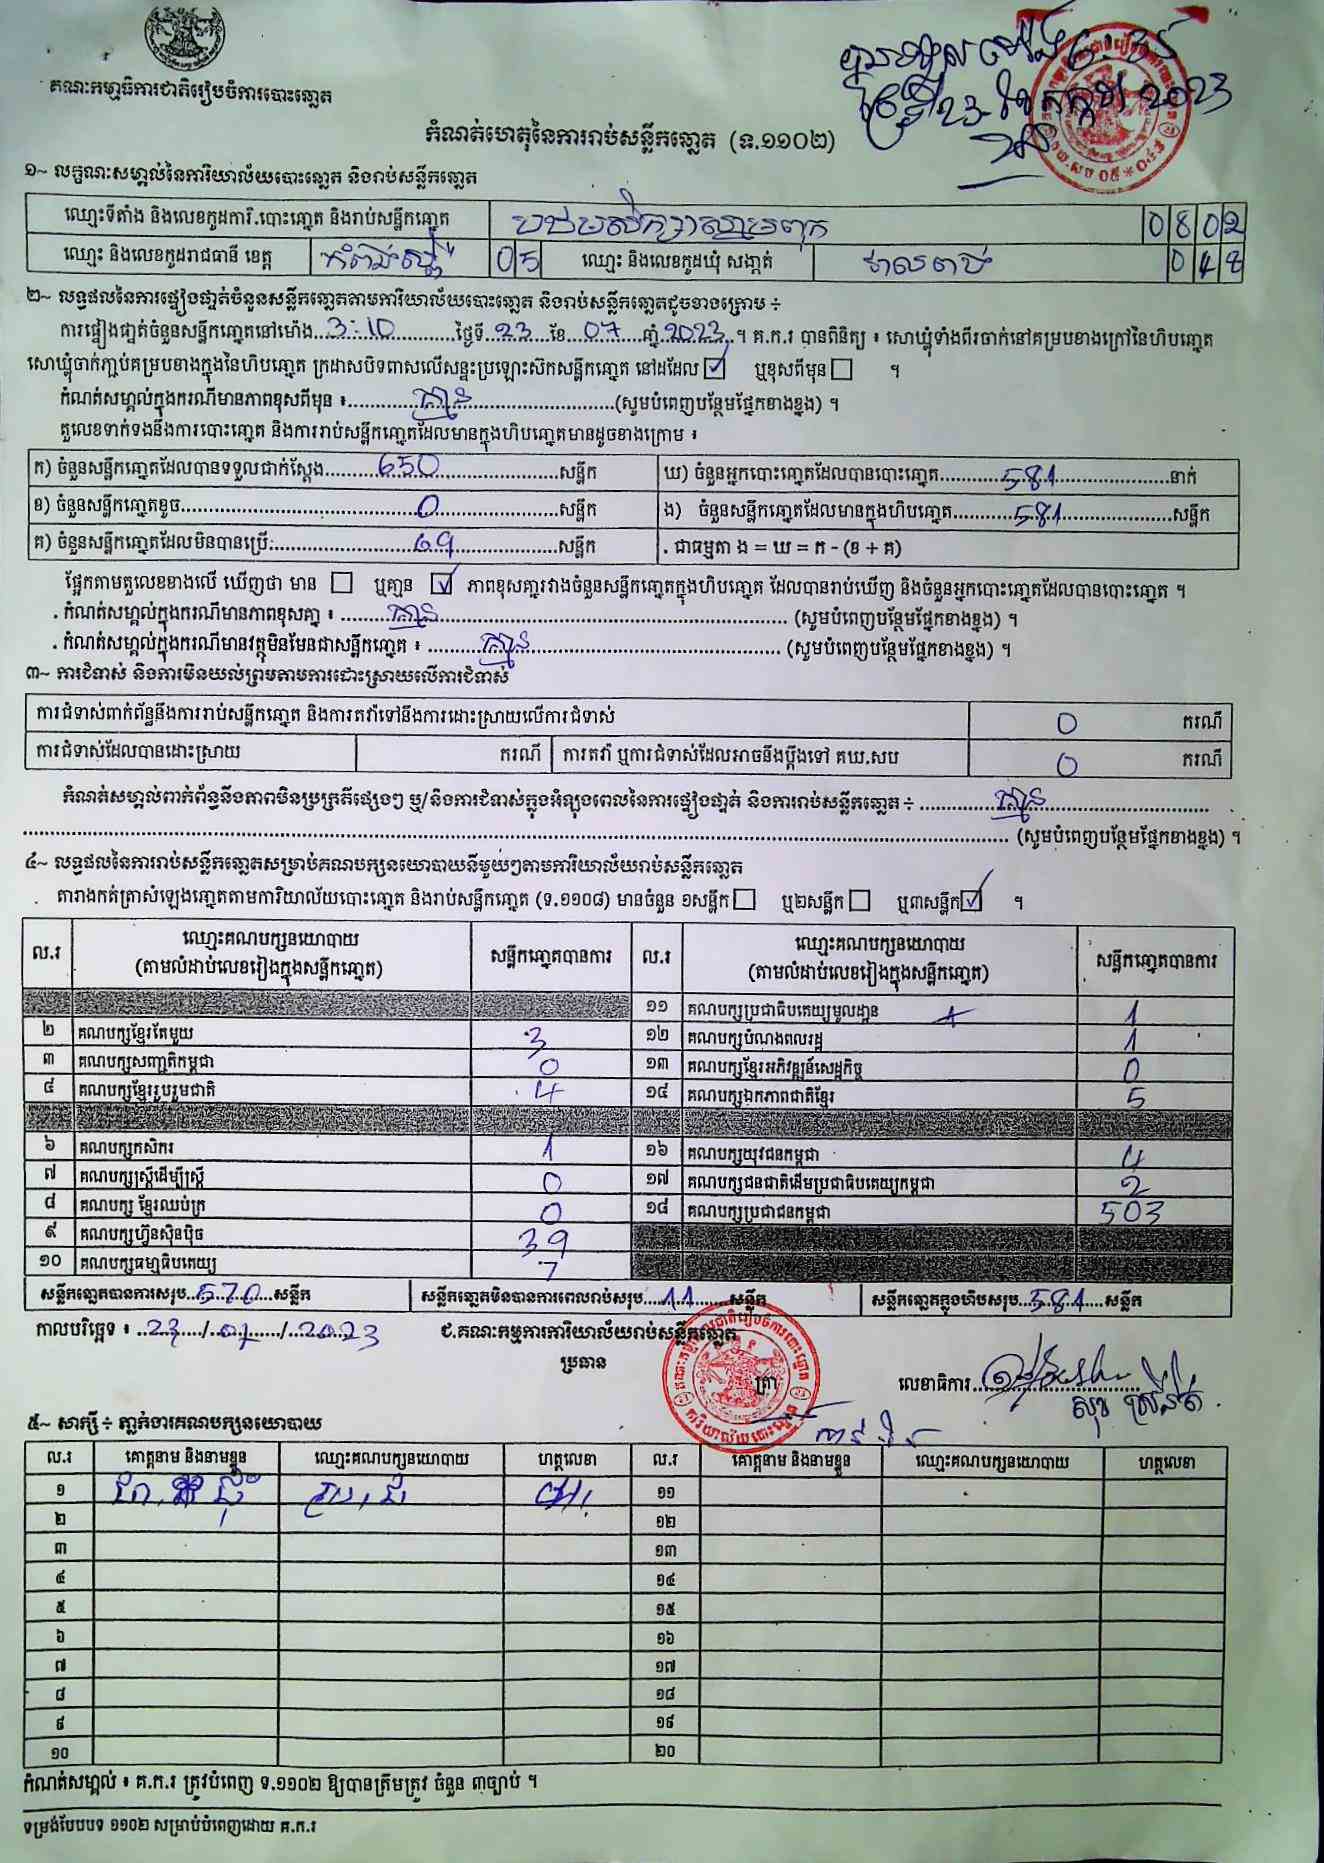 គណៈកម្មាធិការជាតិរៀបចំការបោះឆ្នោត
2023
កំណត់ហេតុនៃការរាប់សន្លឹកឆ្នោត (ទ.១១០២)
១~ លក្ខណៈសម្គាល់នៃការិយាល័យបោះឆ្នោត និងរាប់សន្លឹកឆ្នោត
ឈ្មោះទីតាំង និងលេខកូដការិ.បោះឆ្នោត និងរាប់សន្លឹកឆ្នោត 0802
ឈ្មោះ និងលេខកូដរាជធានី ខេត្ត កំពង់ស្ពឺ 05 ឈ្មោះ និងលេខកូដឃុំ សង្កាត់ 048
២~ លទ្ធផលនៃការផ្ទៀងផ្ទាត់ចំនួនសន្លឹកឆ្នោតតាមការិយាល័យបោះឆ្នោត និងរាប់សន្លឹកឆ្នោតដូចខាងក្រោម ÷
ការផ្ទៀងផ្ទាត់ចំនួនសន្លឹកឆ្នោតនៅម៉ោង...3:10...ថ្ងៃទី...23...ខែ...07...ឆ្នាំ...2023...។ គ.ក.រ បានពិនិត្យ ៖ សោឃ្លុំទាំងពីរចាក់នៅគម្របខាងក្រៅនៃហិបឆ្នោត
សោឃ្លុំចាក់ភ្ជាប់គម្របខាងក្នុងនៃហិបឆ្នោត ក្រដាសបិទពាសលើសន្ទះប្រឡោះស៊កសន្លឹកឆ្នោត នៅដដែល ☑ ឬខុសពីមុន ☐ ។
កំណត់សម្គាល់ក្នុងករណីមានភាពខុសពីមុន ៖...គ្មាន...(សូមបំពេញបន្ថែមផ្នែកខាងខ្នង) ។
តួលេខទាក់ទងនឹងការបោះឆ្នោត និងការរាប់សន្លឹកឆ្នោតដែលមានក្នុងហិបឆ្នោតមានដូចខាងក្រោម ៖
ក) ចំនួនសន្លឹកឆ្នោតដែលបានទទួលជាក់ស្តែង...650...សន្លឹក ឃ) ចំនួនអ្នកបោះឆ្នោតដែលបានបោះឆ្នោត...581...នាក់
ខ) ចំនួនសន្លឹកឆ្នោតខូច...0...សន្លឹក ង) ចំនួនសន្លឹកឆ្នោតដែលមានក្នុងហិបឆ្នោត...581...សន្លឹក
គ) ចំនួនសន្លឹកឆ្នោតដែលមិនបានប្រើ:...69...សន្លឹក . ជាធម្មតា ង = ឃ = ក - (ខ + គ)
ផ្អែកតាមតួលេខខាងលើ ឃើញថា មាន ☐ ឬគ្មាន ☑ ភាពខុសគ្នារវាងចំនួនសន្លឹកឆ្នោតក្នុងហិបឆ្នោត ដែលបានរាប់ឃើញ និងចំនួនអ្នកបោះឆ្នោតដែលបានបោះឆ្នោត ។
. កំណត់សម្គាល់ក្នុងករណីមានភាពខុសគ្នា ៖ ...គ្មាន... (សូមបំពេញបន្ថែមផ្នែកខាងខ្នង) ។
. កំណត់សម្គាល់ក្នុងករណីមានវត្ថុមិនមែនជាសន្លឹកឆ្នោត ៖ ...គ្មាន... (សូមបំពេញបន្ថែមផ្នែកខាងខ្នង) ។
៣~ ការជំទាស់ និងការមិនយល់ព្រមតាមការដោះស្រាយលើការជំទាស់
ការជំទាស់ពាក់ព័ន្ធនឹងការរាប់សន្លឹកឆ្នោត និងការតវ៉ាទៅនឹងការដោះស្រាយលើការជំទាស់ 0 ករណី
ការជំទាស់ដែលបានដោះស្រាយ ករណី ការតវ៉ា ឬការជំទាស់ដែលអាចនឹងប្តឹងទៅ គឃ.សប 0 ករណី
កំណត់សម្គាល់ពាក់ព័ន្ធនឹងភាពមិនប្រក្រតីផ្សេងៗ ឬ/និងការជំទាស់ក្នុងអំឡុងពេលនៃការផ្ទៀងផ្ទាត់ និងការរាប់សន្លឹកឆ្នោត ÷ ...គ្មាន...
... (សូមបំពេញបន្ថែមផ្នែកខាងខ្នង) ។
៤~ លទ្ធផលនៃការរាប់សន្លឹកឆ្នោតសម្រាប់គណបក្សនយោបាយនីមួយៗតាមការិយាល័យរាប់សន្លឹកឆ្នោត
តារាងកត់ត្រាសំឡេងឆ្នោតតាមការិយាល័យបោះឆ្នោត និងរាប់សន្លឹកឆ្នោត (ទ.១១០៨) មានចំនួន ១សន្លឹក ☐ ឬ២សន្លឹក ☐ ឬ៣សន្លឹក ☑ ។
ល.រ ឈ្មោះគណបក្សនយោបាយ (តាមលំដាប់លេខរៀងក្នុងសន្លឹកឆ្នោត) សន្លឹកឆ្នោតបានការ ល.រ ឈ្មោះគណបក្សនយោបាយ (តាមលំដាប់លេខរៀងក្នុងសន្លឹកឆ្នោត) សន្លឹកឆ្នោតបានការ
១១ គណបក្សប្រជាធិបតេយ្យមូលដ្ឋាន 1
២ គណបក្សខ្មែរតែមួយ 3 ១២ គណបក្សបំណងពលរដ្ឋ 1
៣ គណបក្សសញ្ជាតិកម្ពុជា 0 ១៣ គណបក្សខ្មែរអភិវឌ្ឍន៍សេដ្ឋកិច្ច 0
៤ គណបក្សខ្មែររួបរួមជាតិ 4 ១៤ គណបក្សឯកភាពជាតិខ្មែរ 5
៦ គណបក្សកសិករ 1 ១៦ គណបក្សយុវជនកម្ពុជា 4
៧ គណបក្សស្ត្រីដើម្បីស្ត្រី 0 ១៧ គណបក្សជនជាតិដើមប្រជាធិបតេយ្យកម្ពុជា 2
៨ គណបក្ស ខ្មែរឈប់ក្រ 0 ១៨ គណបក្សប្រជាជនកម្ពុជា 503
៩ គណបក្សហ៊្វុនស៊ិនប៉ិច 39
១០ គណបក្សធម្មាធិបតេយ្យ 7
សន្លឹកឆ្នោតបានការសរុប...570...សន្លឹក សន្លឹកឆ្នោតមិនបានការពេលរាប់សរុប...11...សន្លឹក សន្លឹកឆ្នោតក្នុងហិបសរុប...581...សន្លឹក
កាលបរិច្ឆេទ ៖ ...23.../...07.../...2023 ជ.គណៈកម្មការការិយាល័យរាប់សន្លឹកឆ្នោត
ប្រធាន
ត្រា
លេខាធិការ
៥~ សាក្សី ÷ ភ្នាក់ងារគណបក្សនយោបាយ
ល.រ គោត្តនាម និងនាមខ្លួន ឈ្មោះគណបក្សនយោបាយ ហត្ថលេខា ល.រ គោត្តនាម និងនាមខ្លួន ឈ្មោះគណបក្សនយោបាយ ហត្ថលេខា
១ ១១
២ ១២
៣ ១៣
៤ ១៤
៥ ១៥
៦ ១៦
៧ ១៧
៨ ១៨
៩ ១៩
១០ ២០
កំណត់សម្គាល់ ៖ គ.ក.រ ត្រូវបំពេញ ទ.១១០២ ឱ្យបានត្រឹមត្រូវ ចំនួន ៣ច្បាប់ ។
ទម្រង់បែបបទ ១១០២ សម្រាប់បំពេញដោយ គ.ក.រ